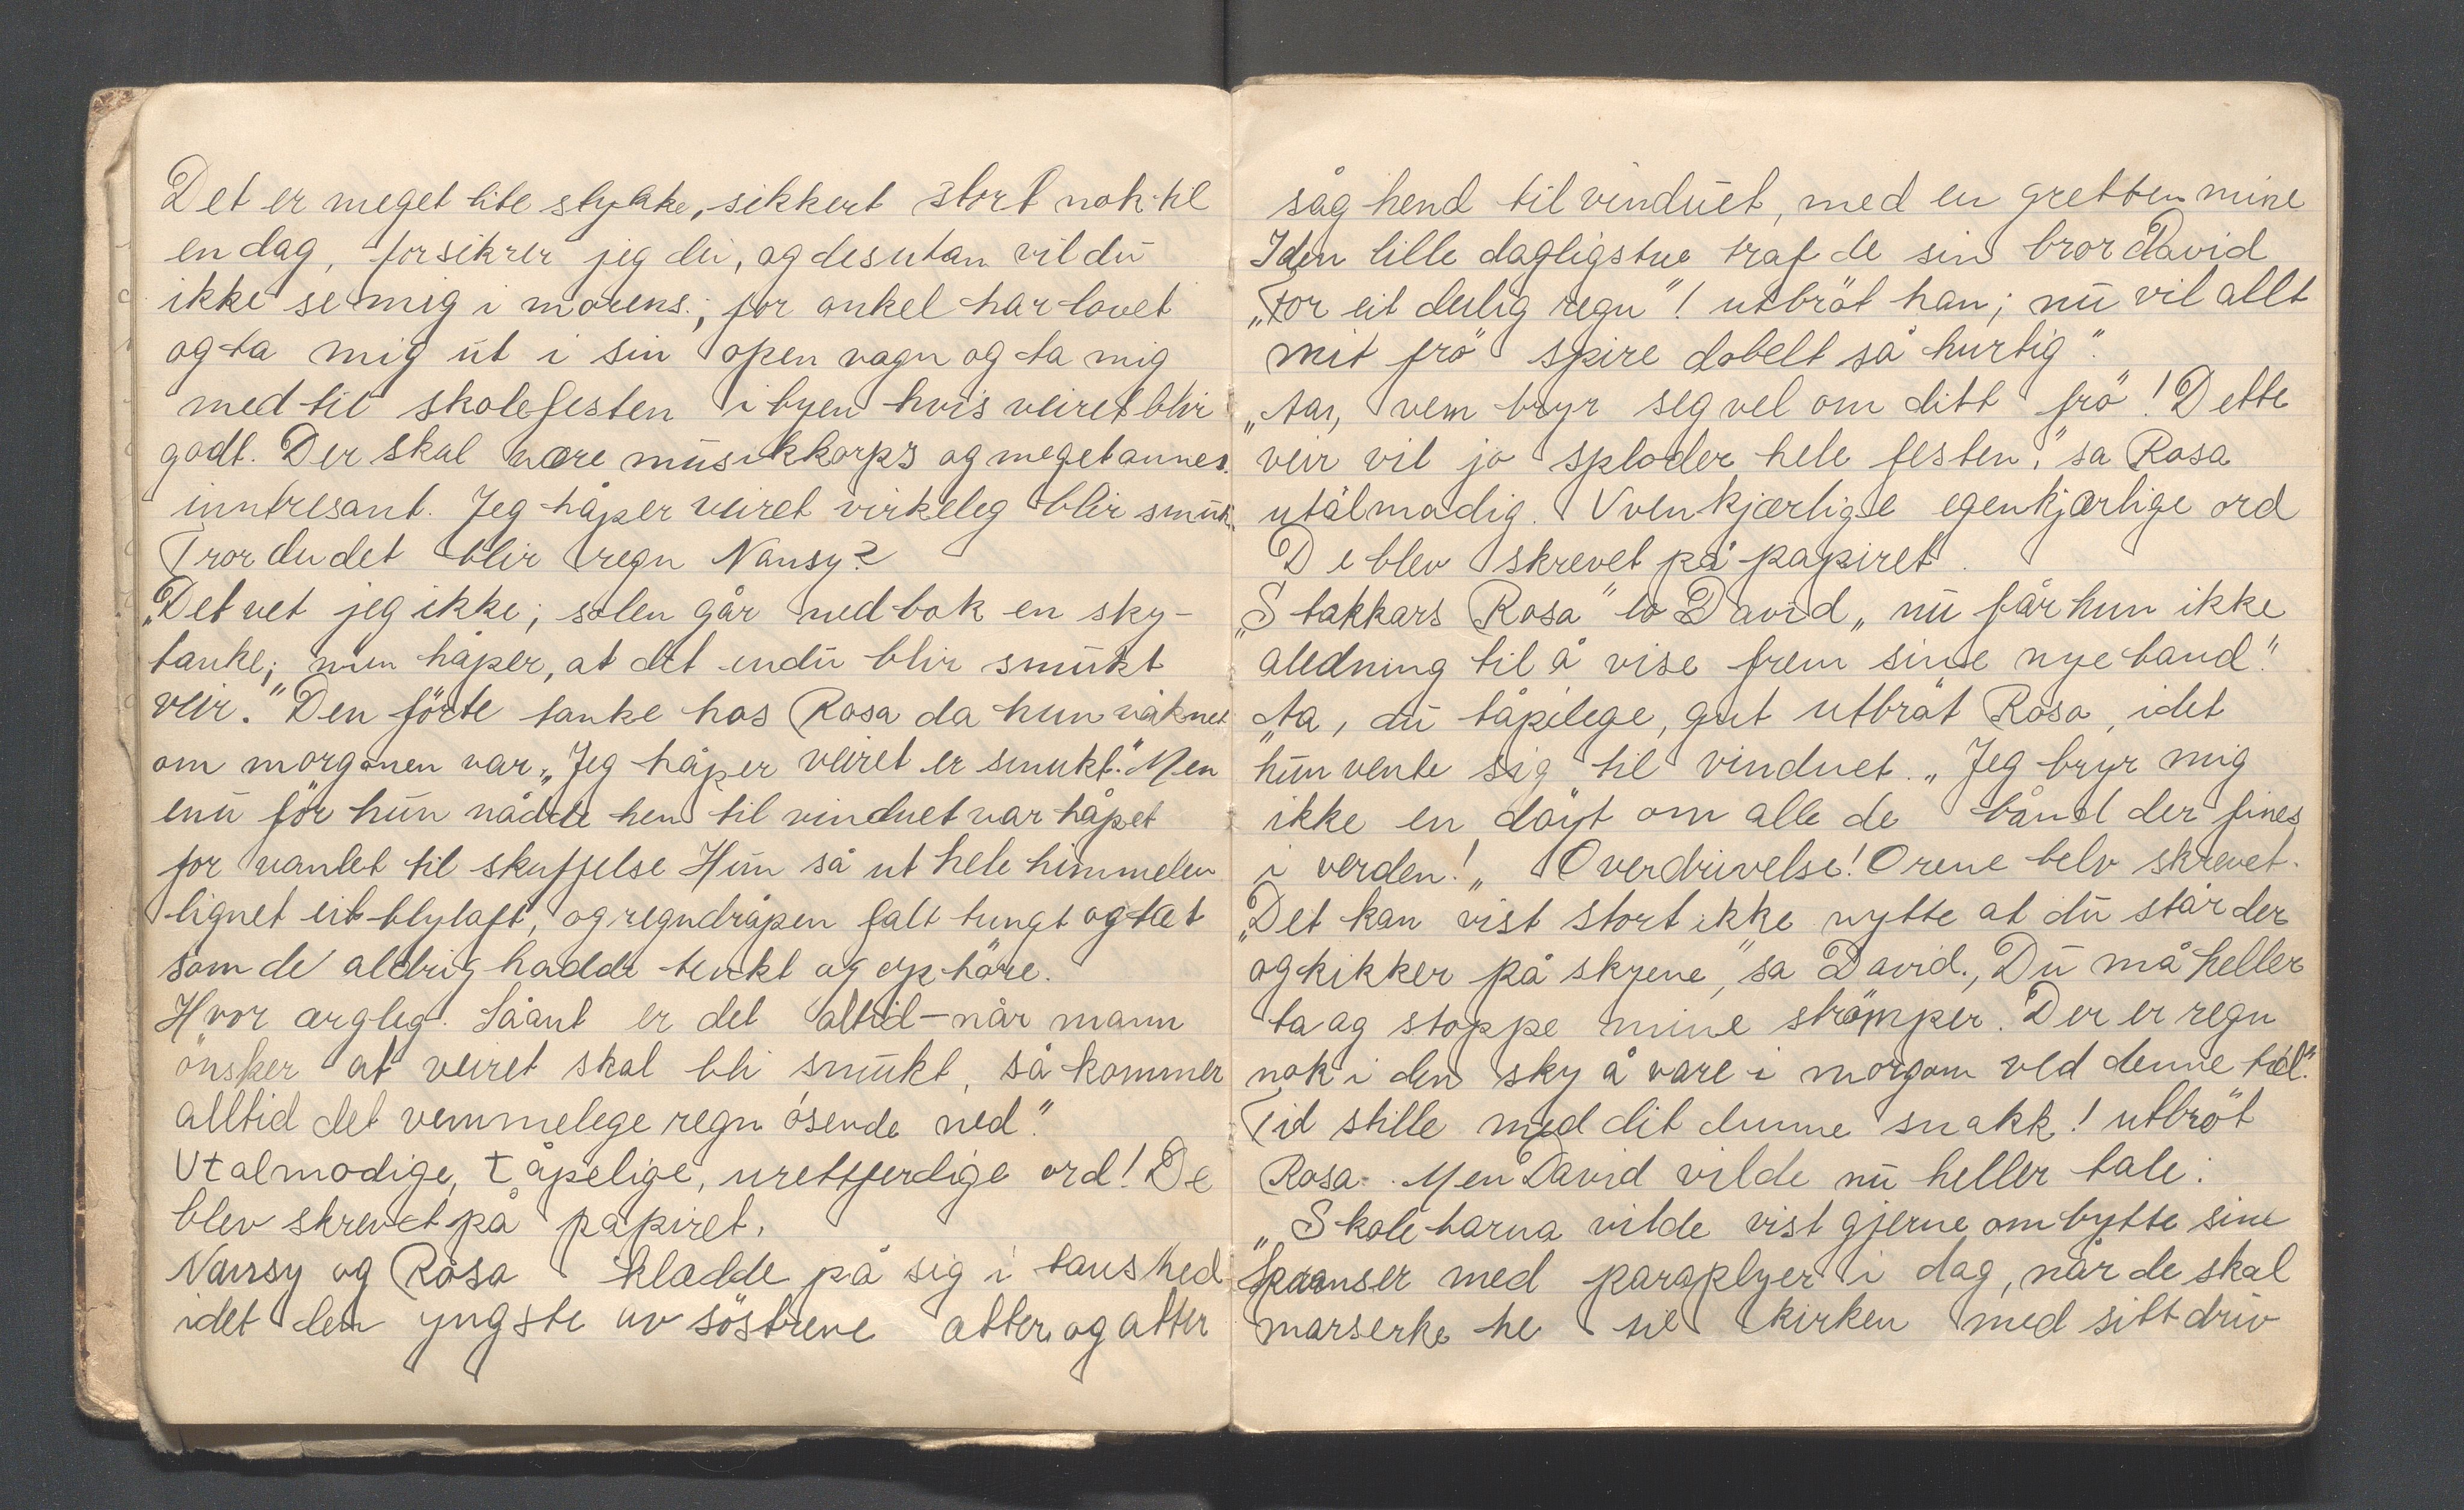 Det er meget lite stykke, sikkert stort nok til
en dag, forsikrer jeg dei, og desutan vil du
ikke se mig i morens.; for onkel har lovet
og ta mig ut i sin open vagn og ta mig
med til skolefesten i byen hvis veiret blir
godt. Der skal være musikkorps og meget annes.
inntresant. Jeg håper veiret virkeleg blir smuk.
Tror du det blir regn Nansy?
„Det vet jeg ikke; solen går ned bak en sky-
tanke; men håper, at det endu blir smukt
veir." Den förte tanke hos Rosa da hun våknet
om morganen var „Jeg håper veiret er smukt." Men
enu för hun nådde hen til vinduet var håpet
for vanlet til skuffelse Hun så ut hele himmelen
lignet eit blyloft, og regndråpen falt tungt og tæt
som de aldrig hadde tenkt og ophöre.
Hvor ærgleg. Såant er det altid - når mann
önsker at veiret skal bli smukt, så kommer
alltid det vemmelege regn ósende ned."
Utalmodige, tåpelige, urettferdige ord! De
blev skrevet på papiret.
Nansy og Rosa kladde på sig i taushed
idet den yngste av söstrene atter og atter
såg hend til vinduet, med en gretten mine
I den lille dagligstue traf de sin bror David
„For eit deilig regn"! utbröt han; nu vil allt
mit frö spire dobelt så hurtig".
„Aa, vem bryr seg vel om ditt frö! Dette
veir vil jo sploder hele festen," sa Rosa
utålmodig. Uvenkjærlige egenkjærlige ord
De blev skrevet på papiret.
„Stakkars Rosa" lo David „nu får hun ikke
aledning til å vise frem sine nye band."
„Aa, du tåpilege, gut utbröt Rosa, idet
hun vente sig til vinduet. „Jeg bryr mig
ikke en döyt om alle de bånd der fines
i verden!„ Overdrivelse! Orene belv skrevet.
„Det kan vist stort ikke nytte at du står der
og kikker på skyene," sa David. „Du må heller
ta og stoppe mine strömper. Der er regn
nok i den sky å vare i morgom ved denne tid."
Tid stille med dit dumme snakk! utbröt
Rosa. Men David vilde nu heller tale:
„Skole barna vilde vist gjerne ombytte sine
med paraplyer i dag, når de skal
marserke he til kirken med sitt driv